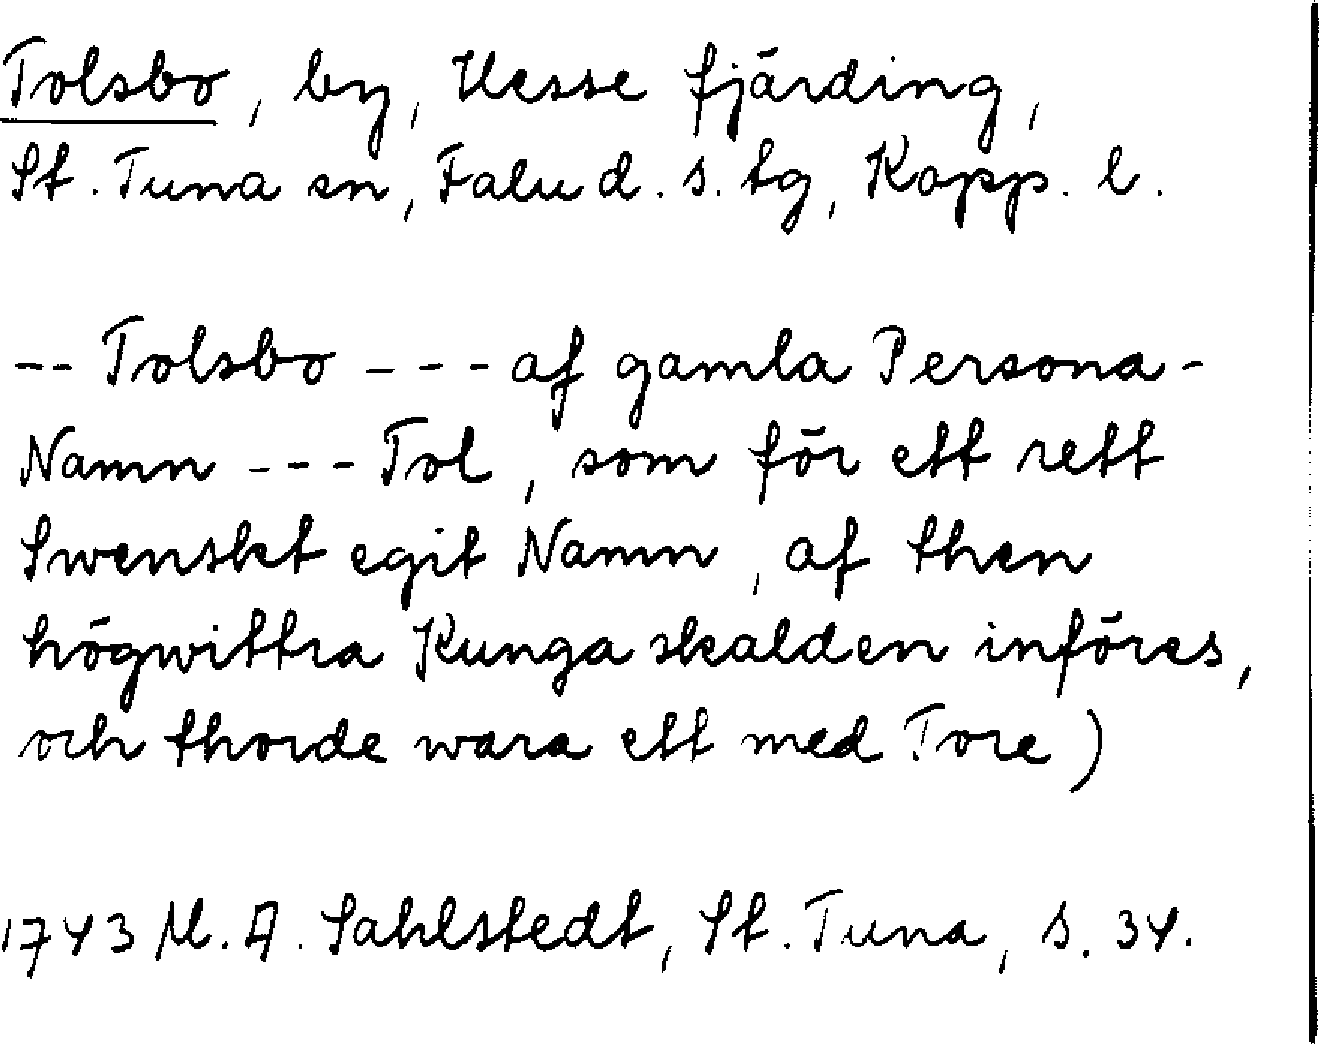 Tolsbo, by, Uesse fjärding,
St. Tuna sn, Falu d. s. tg, Kopp. l.
-- Tolsbo --- af gamla Persona-
Namn --- Tol, som för ett rett
Swenskt egit Namn, af then
högwittra Kunga skalden införes,
och thorde wara ett med Tore)
1743 M. A. Sahlstedt, St. Tuna, s. 34.